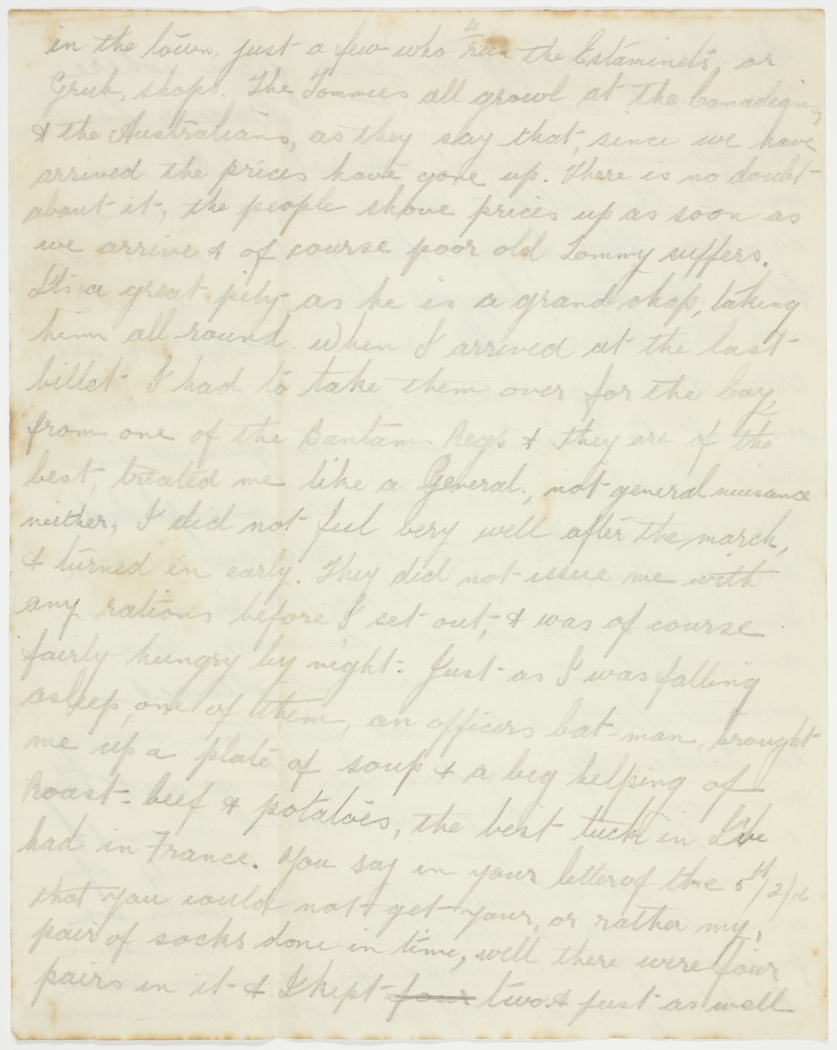 in the town, just a few who run the Estaminets, or
Grub, shops. The Tommies all growl at the Canadians,
& the Australians, as they say that, since we have
arrived the prices have gone up. There is no doubt
about it, the people shove prices up as soon as
we arrive & of course poor old Tommy suffers.
It's a great pity as he is a grand chap, taking
him all round. When I arrived at the last
billet, I had to take them over for the Coy,
from one of the Bantam Regs & they are of the
best, treated me like a General, not general nuisance
neither, I did not feel very well after the march,
& turned in early. They did not issue me with
any rations before I set out, & was of course
fairly hungry by night. Just as I was falling
asleep, one of them, an officers bat-man, brought
me up a plate of soup & a big helping of
Roast-beef & potatoes, the best tuck in I've
had in France. You say in your letter of the 6th/2/16
that you could not get your, or rather my,
pair of socks done in time, well there were four
pairs in it & I kept four two & just as well